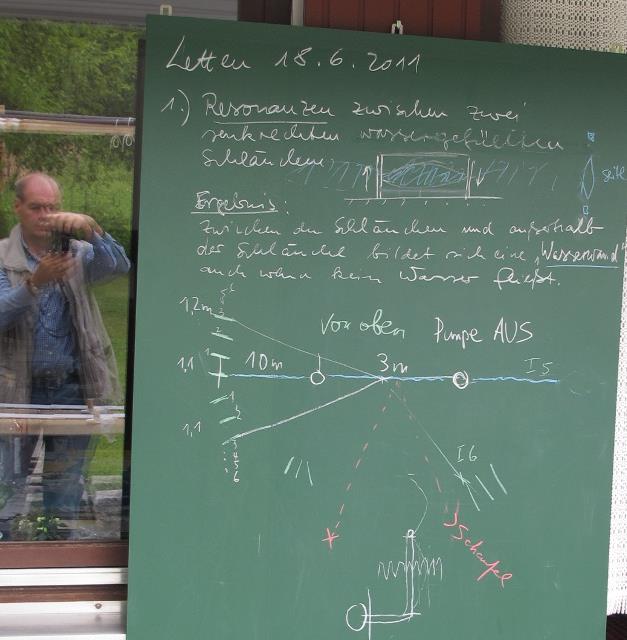 Letten 18.6.2011
1.) Resonanzen zwischen zwei
senkrechten wassergefüllten
Schläuchen
seite
Ergebnis:
Zwischen den Schläuchen und außerhalb
der Schläuche bildet sich eine "Wasserwand"
auch wenn kein Wasser fließt.
1,2m
von oben Pumpe AUS
1,1 10m 3m I5
1,1
I6
Schaufel